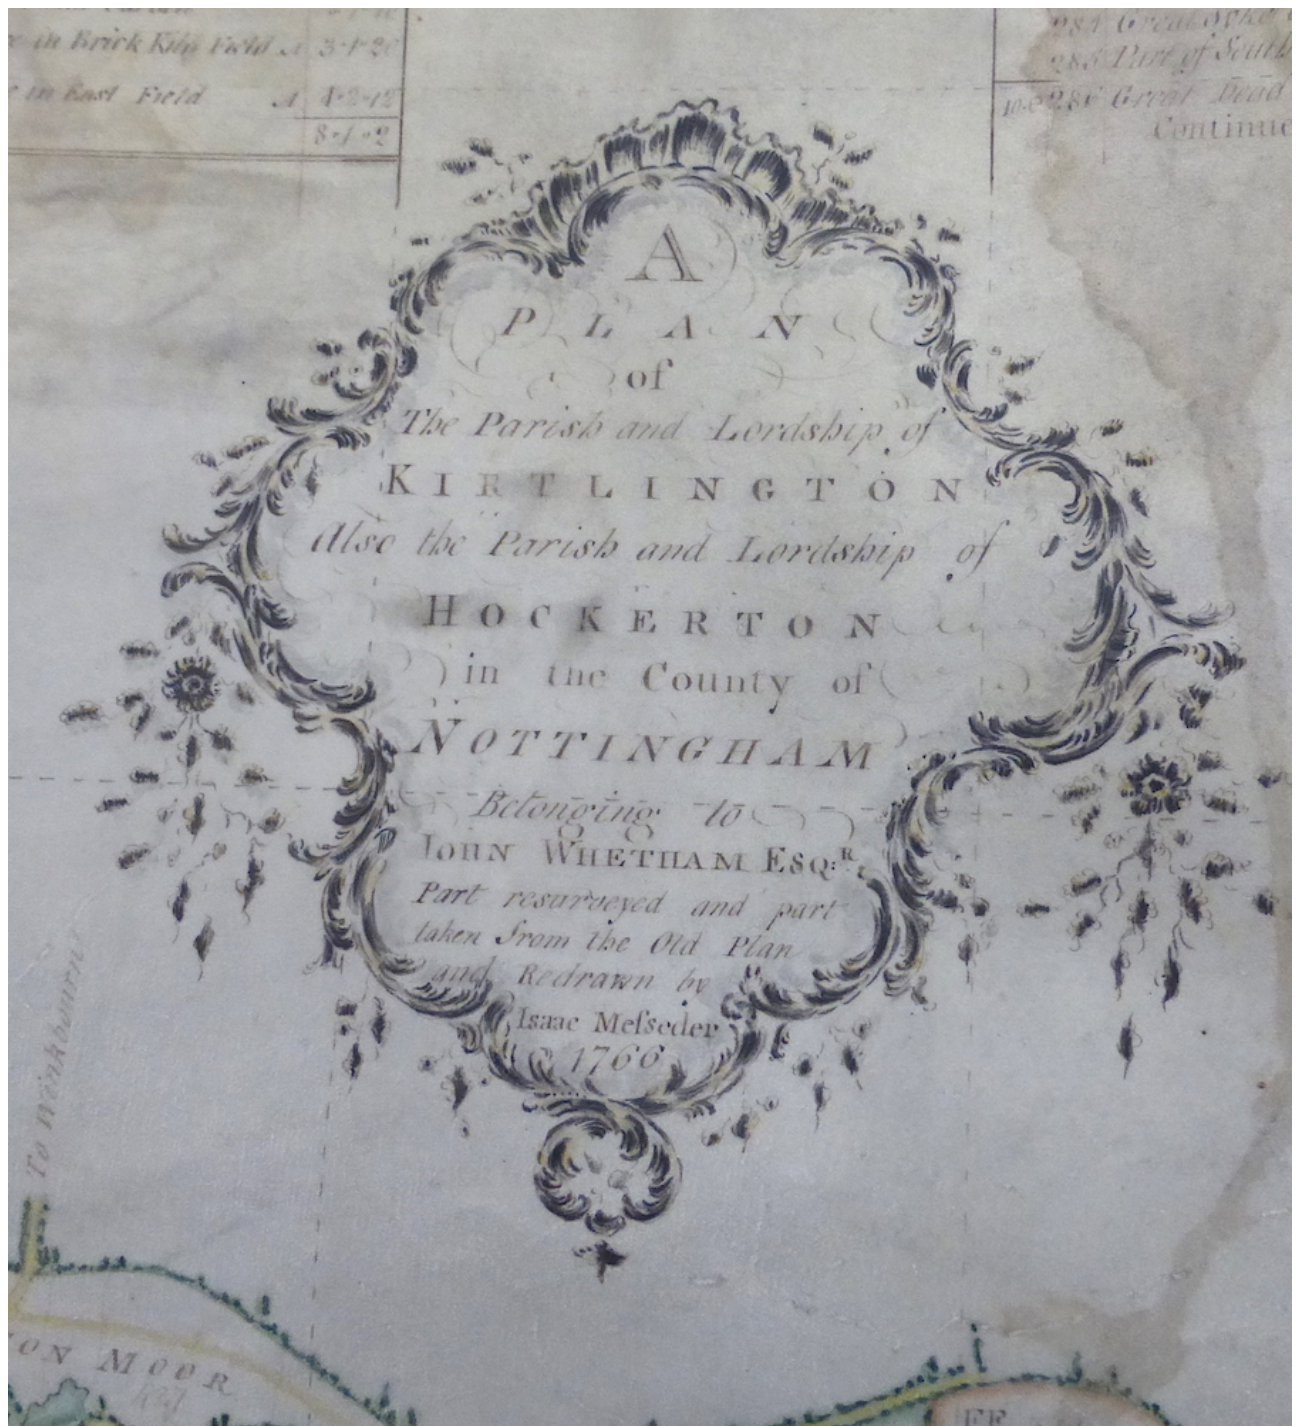 in Brick Kiln Field A 3-1-20
in East Field A 4-2-12
8-1-2
284 Great
285 Part of South
286 Great Dead
Continue
A
PLAN
of
The Parish and Lordship of
KIRTLINGTON
Also the Parish and Lordship of
HOCKERTON
in the County of
NOTTINGHAM
Belonging to
IOHN WHETHAM ESQ:R
Part resurveyed and part
taken from the Old Plan
and Redrawn by
Isaac Meſseder
1766
To Winkbourn
ON MOOR